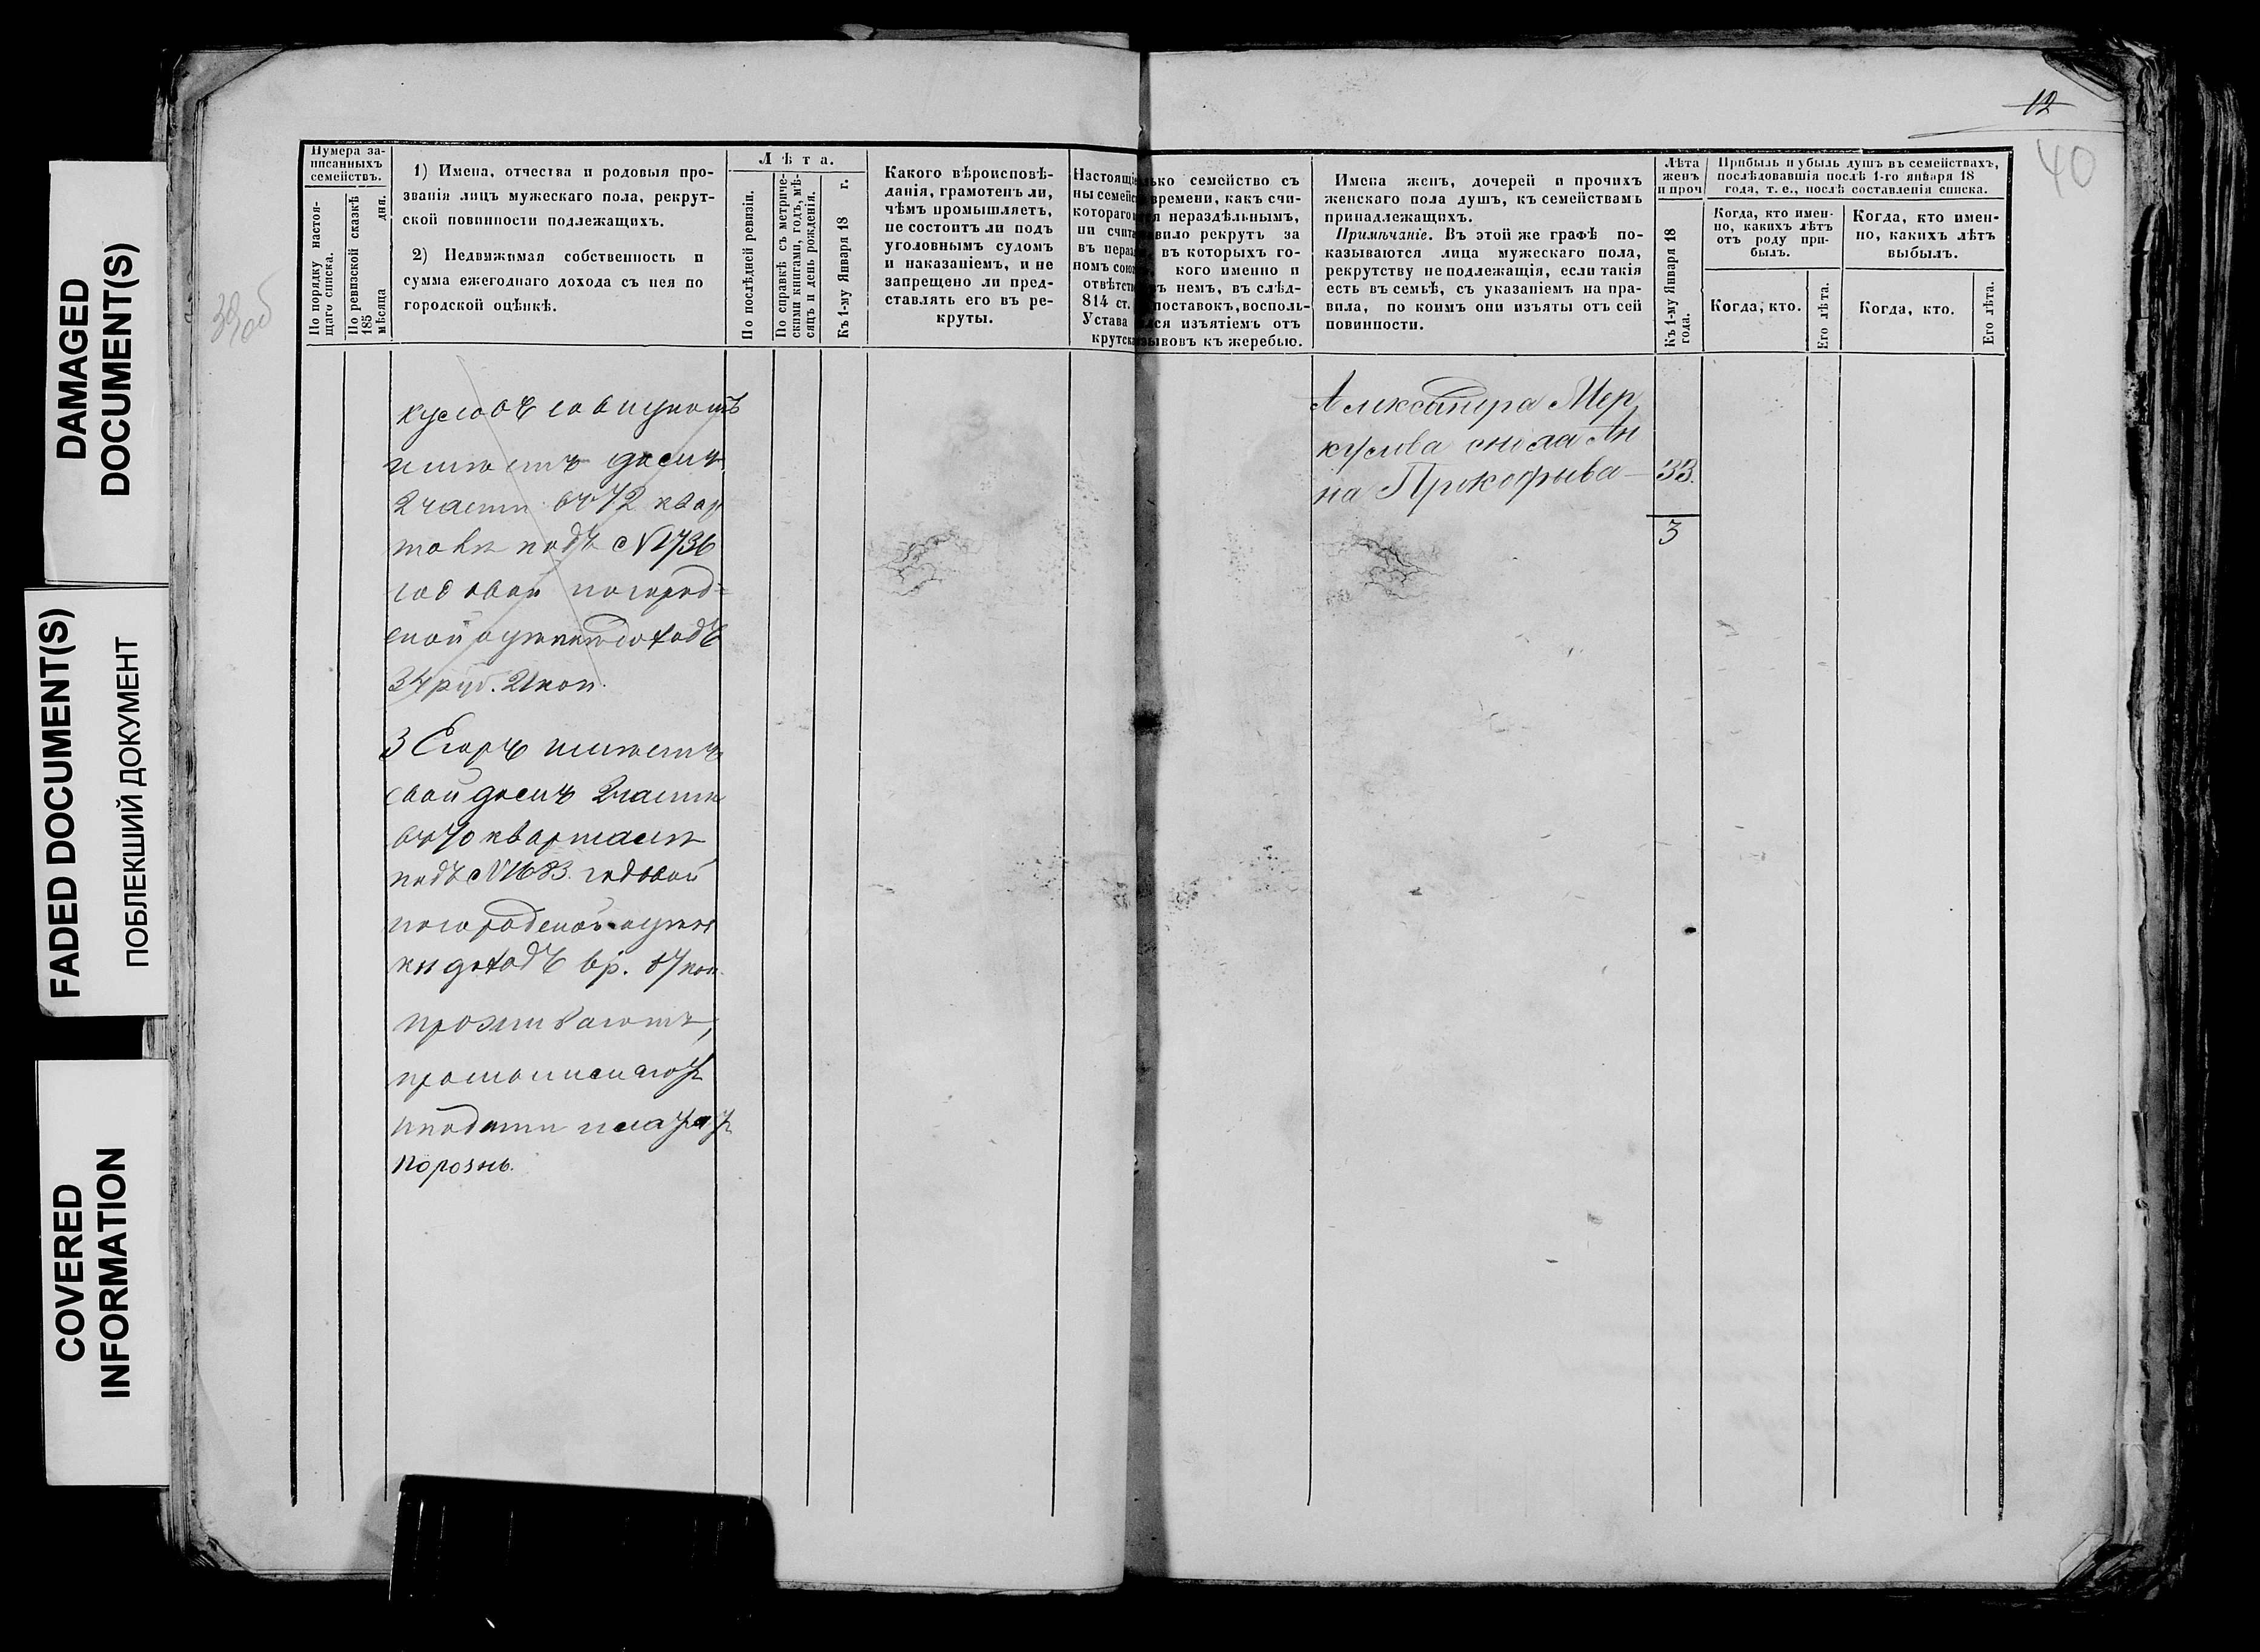 DAMAGED
DOCUMENT(S)
FADED DOCUMENT(S)
ПОБЛЕКШИЙ ДОКУМЕНТ
COVERED
INFORMATION
39об
12
40
Нумера за-
писанныхъ
семействъ.
По порядку настоя-
щаго списка.
По ревизской сказкѣ
185
мѣсяца дня.
1) Имена, отчества и родовыя про-
званія лицъ мужескаго пола, рекрут-
ской повинности подлежащихъ.
2) Недвижимая собственность и
сумма ежегоднаго дохода съ нея по
городской оцѣнкѣ.
Лѣта.
По послѣдней ревизіи.
По справкѣ съ метриче-
скими книгами, годъ, мѣ-
сяцъ и день рожденія.
Къ 1-му Января 18 г.
Какого вѣроисповѣ-
данія, грамотенъ ли,
чѣмъ промышляетъ,
не состоитъ ли подъ
уголовнымъ судомъ
и наказаніемъ, и не
запрещено ли пред-
ставлять его въ ре-
круты.
Настоящіе
ны семейс
котораго
ни счита
въ нераз
номъ сою
отвѣтств
814 ст.
Устава
крутск
лько семейство съ
времени, какъ счи-
я нераздѣльнымъ,
вило рекрутъ за
въ которыхъ го-
кого именно и
въ немъ, въ слѣд-
поставокъ, восполь-
лся изъятіемъ отъ
зывовъ къ жеребью.
Имена женъ, дочерей и прочихъ
женскаго пола душъ, къ семействамъ
принадлежащихъ.
Примѣчаніе. Въ этой же графѣ по-
казываются лица мужескаго пола,
рекрутству не подлежащія, если такія
есть въ семьѣ, съ указаніемъ на пра-
вила, по коимъ они изъяты отъ сей
повинности.
Лѣта
женъ
и проч
Къ 1-му Января 18
года.
Прибыль и убыль душъ въ семействахъ,
послѣдовавшія послѣ 1-го января 18
года, т. е., послѣ составленія списка.
Когда, кто имен-
но, какихъ лѣтъ
отъ роду при-
былъ.
Когда, кто имен-
но, какихъ лѣтъ
выбылъ.
Когда, кто.
Его лѣта.
Когда, кто.
Его лѣта.
куловъ совмѣстно
имѣетъ домъ
2 части въ 72 квар
талѣ подъ №736
годовой по город-
ской оцѣнкѣ доходъ
34 руб. 21 коп.
3 Егоръ имѣетъ
свой домъ 2 части
въ 70 кварталѣ
подъ №1683. годовой
по городской оцѣн
ки доходъ 6р. 87 коп.
проживаютъ,
промышляютъ
и подати платятъ
порознь.
Александра Мер
кулова сноха Ан
на Прокофьева 33.
3